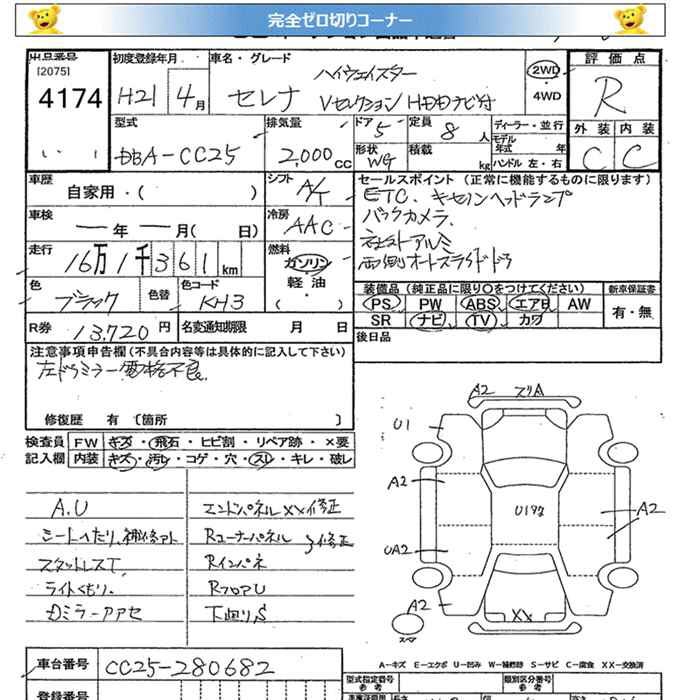 完全ゼロ切りコーナー
出品番号
[2075]
4174
初度登録年月
H21 4月
車名・グレード
ハイウェイスター
セレナ Vセレクション HDDナビ付
2WD
・
4WD
評価点
R
外装 内装
C C
型式
DBA-CC25
排気量
2,000cc
ドア 5
定員 8人
形状 WG
積載 kg
ディーラー・並行
モデル年式 年
ハンドル 左・右
車歴
自家用・( )
シフト A/T
車検
ー年 ー月( 日)
冷房 AAC
走行
16万1千361km
燃料
ガソリン
軽油
・
( )
色
ブラック
色替
色コード
KH3
R券
13,720円
名変通知期限 月 日
セールスポイント (正常に機能するものに限ります)
ETC、キセノンヘッドランプ
バックカメラ、
社外アルミ
両側オートスライドドア
装備品(純正品に限り○をつけてください)
新車保証書
PS PW ABS エアB AW
有・無
SR ナビ TV カワ
後日品
注意事項申告欄(不具合内容等は具体的に記入して下さい)
左ドアミラー電格不良
修復歴 有 〔箇所 〕
検査員 FW キズ・飛石・ヒビ割・リペア跡・×要
記入欄 内装 キズ・汚レ・コゲ・穴・スレ・キレ・破レ
A.U
シートヘたり、補修アト
スタットレスT、
ライトくもり、
Dミラーアアセ
エンドパネルXX修正
Rコーナーパネル 修正
Rインパネ
RフロアU
下廻りS
A2 スリA
U1
A2
UA2
A2
U1多
A2
XX
スペア
A-キズ E-エクボ U-凹み W-補修跡 S-サビ C-腐食 XX-交換済
車台番号 CC25-280682
登録番号
型式指定番号
参考
類別区分番号
参考